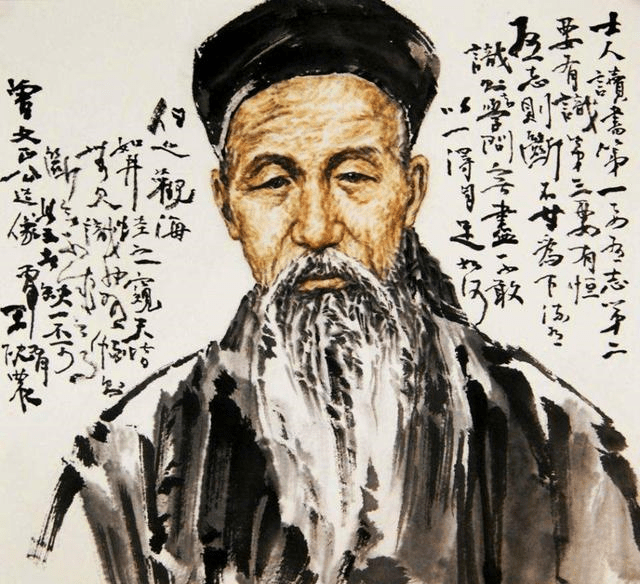 士人讀書第一要有志第二
要有識第三要有恒
有志則斷不甘為下流有
識則知學問無盡不敢
以一得自足如河
伯之觀海
如井蛙之窺天皆
無見識也有恒則
斷無不成之事
此三者缺一不可
曾文正公造像